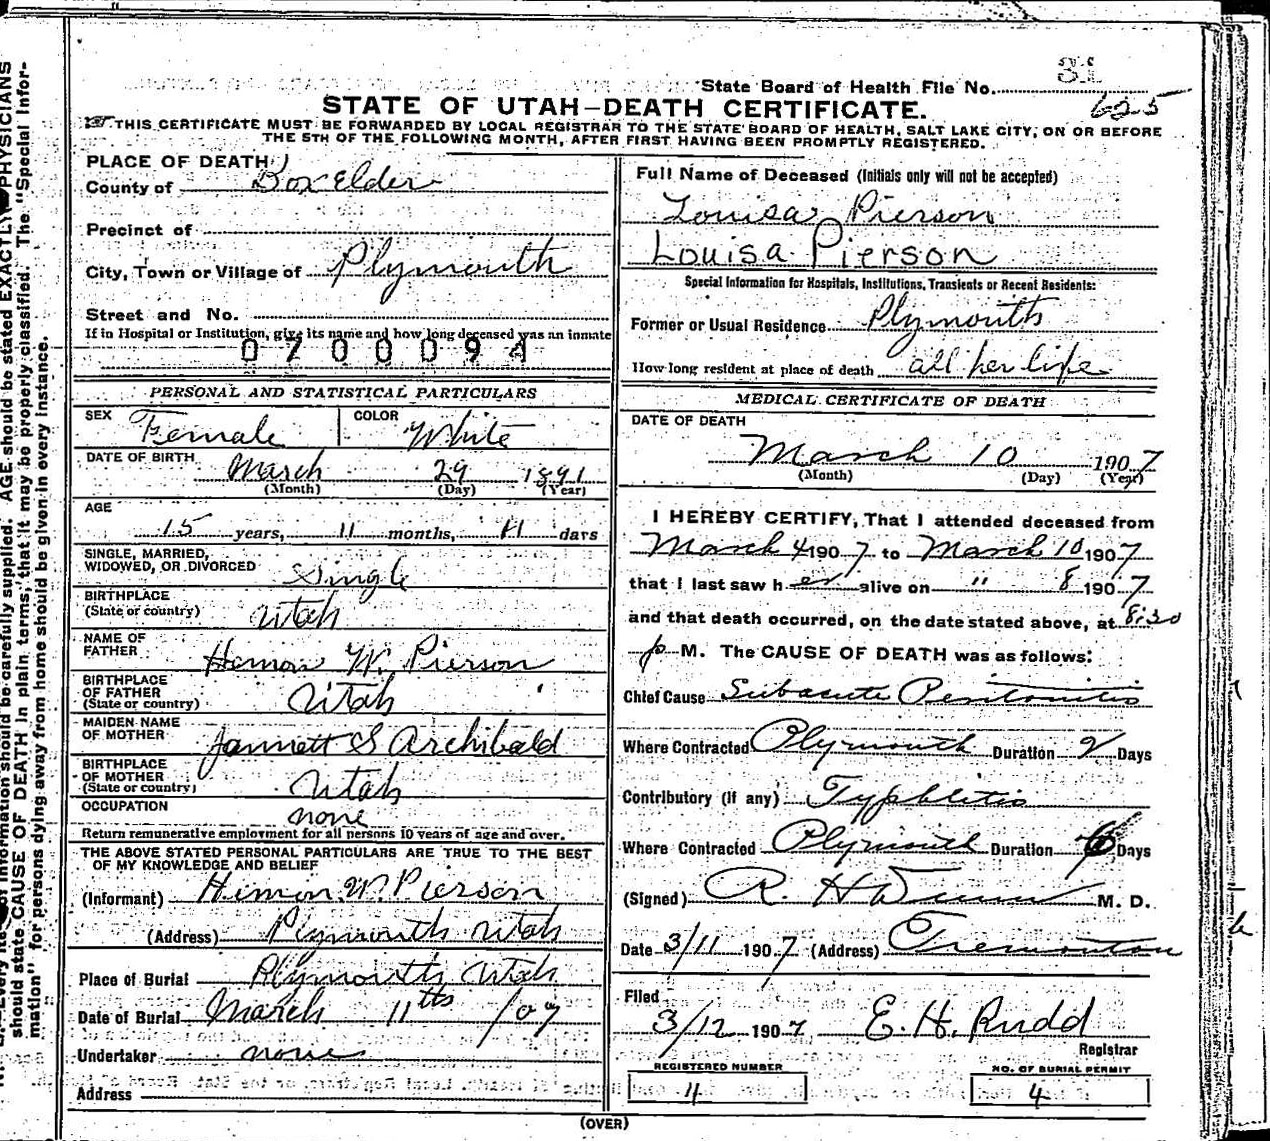 31
State Board of Health File No.
625
STATE OF UTAH–DEATH CERTIFICATE.
THIS CERTIFICATE MUST BE FORWARDED BY LOCAL REGISTRAR TO THE STATE BOARD OF HEALTH, SALT LAKE CITY, ON OR BEFORE
THE 5TH OF THE FOLLOWING MONTH, AFTER FIRST HAVING BEEN PROMPTLY REGISTERED.
PLACE OF DEATH
County of Box Elder
Precinct of
City, Town or Village of Plymouth
Street and No.
If in Hospital or Institution, give its name and how long deceased was an inmate
0700094
PERSONAL AND STATISTICAL PARTICULARS
SEX Female COLOR White
DATE OF BIRTH March 29 1891
(Month) (Day) (Year)
AGE
15 years, 11 months, 11 days
SINGLE, MARRIED,
WIDOWED, OR DIVORCED Single
BIRTHPLACE
(State or country) Utah
NAME OF
FATHER Hemon W. Pierson
BIRTHPLACE
OF FATHER
(State or country) Utah
MAIDEN NAME
OF MOTHER Jannett S Archibald
BIRTHPLACE
OF MOTHER
(State or country) Utah
OCCUPATION
none
Return remunerative employment for all persons 10 years of age and over.
THE ABOVE STATED PERSONAL PARTICULARS ARE TRUE TO THE BEST
OF MY KNOWLEDGE AND BELIEF
(Informant) Hemon W. Pierson
(Address) Plymouth Utah
Place of Burial Plymouth Utah
Date of Burial March 11th /07
Undertaker none
Address
Full Name of Deceased (Initials only will not be accepted)
Louisa Pierson
Louisa Pierson
Special Information for Hospitals, Institutions, Transients or Recent Residents:
Former or Usual Residence Plymouth
How long resident at place of death all her life
MEDICAL CERTIFICATE OF DEATH
DATE OF DEATH
March 10 1907
(Month) (Day) (Year)
I HEREBY CERTIFY, That I attended deceased from
March 4 1907 to March 10 1907
that I last saw her alive on " 8 1907
and that death occurred, on the date stated above, at 8:30
p M. The CAUSE OF DEATH was as follows:
Chief Cause Subacute Peritonitis
Where Contracted Plymouth Duration 2 Days
Contributory (if any) Typhlitis
Where Contracted Plymouth Duration 6 Days
(Signed) R. H. M. D.
Date 3/11 1907 (Address) Tremonton
Filed
3/12 1907 E. H. Rudd
Registrar
REGISTERED NUMBER
11
NO. OF BURIAL PERMIT
4
(OVER)
information should be carefully supplied. AGE should be stated EXACTLY. PHYSICIANS
should state CAUSE OF DEATH in plain terms, that it may be properly classified. The "Special Infor-
mation" for persons dying away from home should be given in every instance.